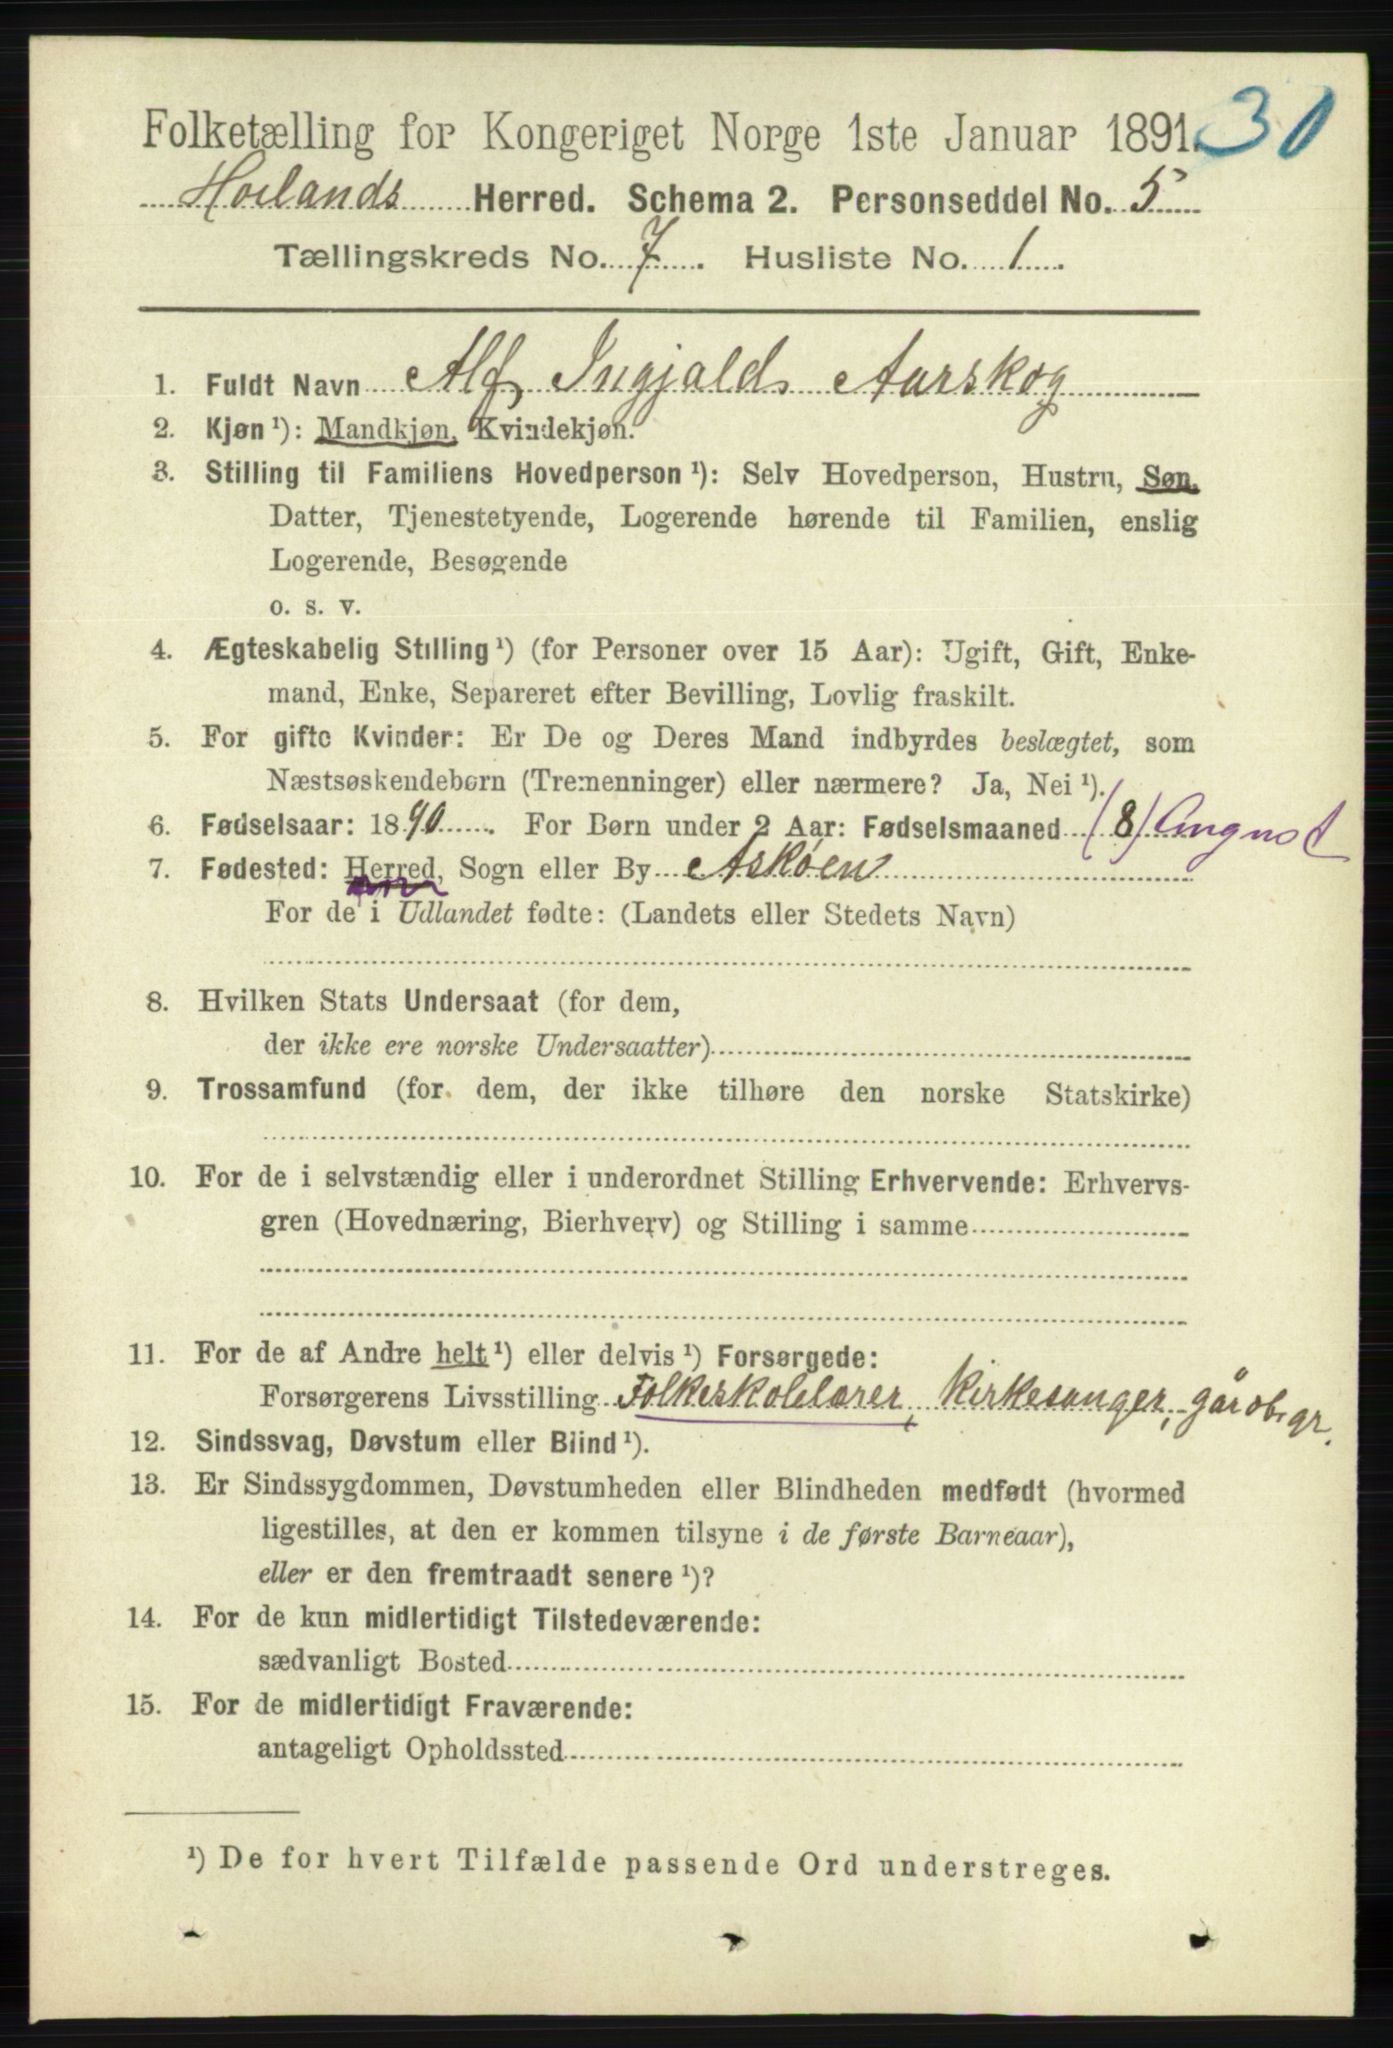 Folketælling for Kongeriget Norge 1ste Januar 1891. 30
Hoilands Herred. Schema 2. Personseddel No. 5
Tællingskreds No. 7. Husliste No. 1.
1. Fuldt Navn Alf Ingjald Aurskog
2. Kjøn ¹): Mandkjøn, Kvindekjøn.
3. Stilling til Familiens Hovedperson ¹): Selv Hovedperson, Hustru, Søn,
Datter, Tjenestetyende, Logerende hørende til Familien, enslig
Logerende, Besøgende
o. s. v.
4. Ægteskabelig Stilling ¹) (for Personer over 15 Aar): Ugift, Gift, Enke-
mand, Enke, Separeret efter Bevilling, Lovlig fraskilt.
5. For gifte Kvinder: Er De og Deres Mand indbyrdes beslægtet, som
Næstsøskendebørn (Tremenninger) eller nærmere? Ja, Nei ¹).
6. Fødselsaar: 1890. For Børn under 2 Aar: Fødselsmaaned (8) August
7. Fødested: Herred, Sogn eller By Askøen
For de i Udlandet fødte: (Landets eller Stedets Navn)
8. Hvilken Stats Undersaat (for dem,
der ikke ere norske Undersaatter)
9. Trossamfund (for dem, der ikke tilhøre den norske Statskirke)
10. For de i selvstændig eller i underordnet Stilling Erhvervende: Erhvervs-
gren (Hovednæring, Bierhverv) og Stilling i samme
11. For de af Andre helt ¹) eller delvis ¹) Forsørgede:
Forsørgerens Livsstilling Folkeskolelærer, Kirkesanger, gårdbr.
12. Sindssvag, Døvstum eller Blind ¹).
13. Er Sindssygdommen, Døvstumheden eller Blindheden medfødt (hvormed
ligestilles, at den er kommen tilsyne i de første Barneaar),
eller er den fremtraadt senere ¹)?
14. For de kun midlertidigt Tilstedeværende:
sædvanligt Bosted
15. For de midlertidigt Fraværende:
antageligt Opholdssted
¹) De for hvert Tilfælde passende Ord understreges.